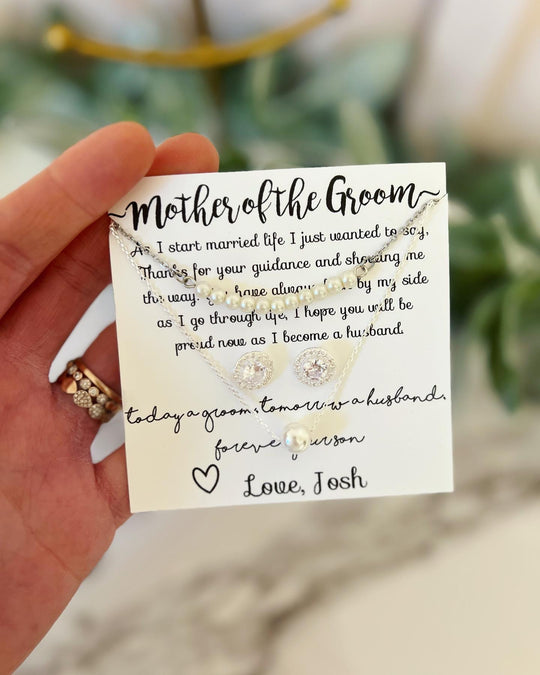 ~Mother of the Groom~
As I start married life I just wanted to say,
Thanks for your guidance and showing me
the way. You have always been by my side
as I go through life, I hope you will be
proud now as I become a husband.
today a groom, tomorrow a husband,
forever your son
Love, Josh